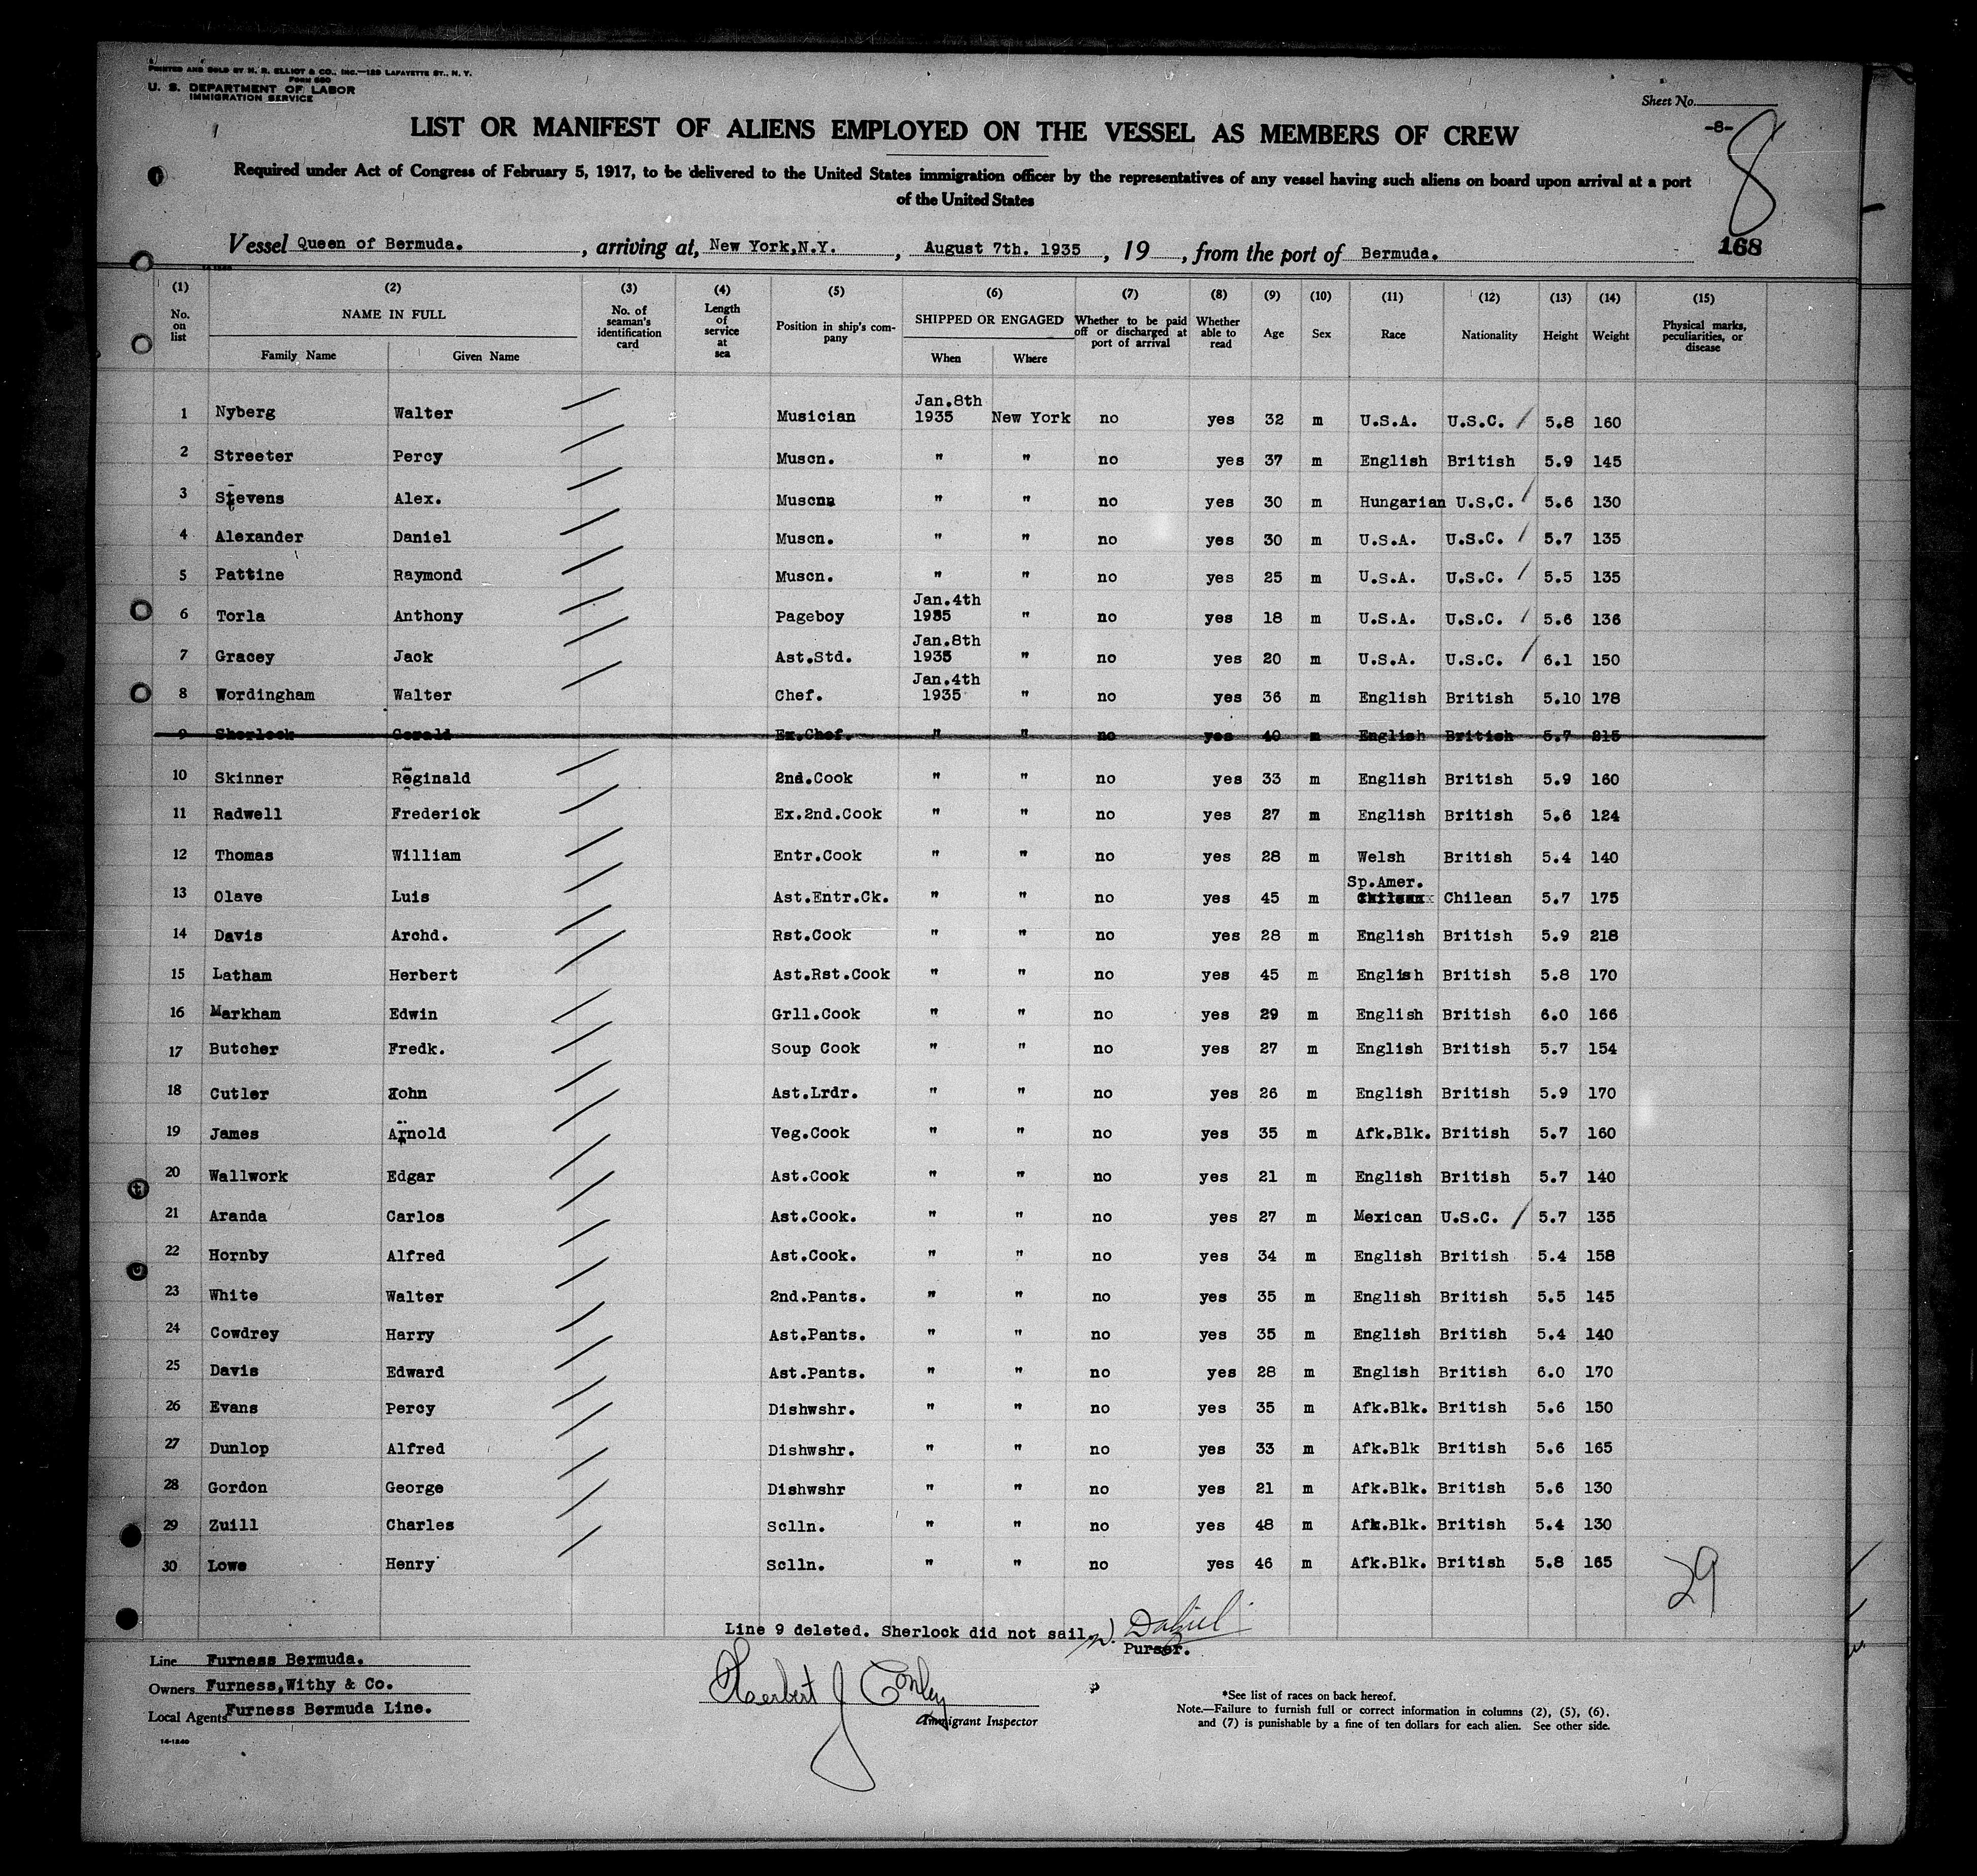 PRINTED AND SOLD BY N. S. ELLIOT & CO., INC.—129 LAFAYETTE ST., N. Y.
Form 680
U. S. DEPARTMENT OF LABOR
IMMIGRATION SERVICE
Sheet No.
LIST OR MANIFEST OF ALIENS EMPLOYED ON THE VESSEL AS MEMBERS OF CREW
-8-
8
Required under Act of Congress of February 5, 1917, to be delivered to the United States immigration officer by the representatives of any vessel having such aliens on board upon arrival at a port
of the United States
168
Vessel Queen of Bermuda. , arriving at, New York,N.Y. , August 7th. 1935 , 19 , from the port of Bermuda.
(1) (2) (3) (4) (5) (6) (7) (8) (9) (10) (11) (12) (13) (14) (15)
No. on list NAME IN FULL Family Name Given Name No. of seaman's identification card Length of service at sea Position in ship's company SHIPPED OR ENGAGED When Where Whether to be paid off or discharged at port of arrival Whether able to read Age Sex Race Nationality Height Weight Physical marks, peculiarities, or disease
1 Nyberg Walter Musician Jan.8th 1935 New York no yes 32 m U.S.A. U.S.C. 5.8 160
2 Streeter Percy Muscn. " " no yes 37 m English British 5.9 145
3 Stevens Alex. Muscnn " " no yes 30 m Hungarian U.S.C. 5.6 130
4 Alexander Daniel Muscn. " " no yes 30 m U.S.A. U.S.C. 5.7 135
5 Pattine Raymond Muscn. " " no yes 25 m U.S.A. U.S.C. 5.5 135
6 Torla Anthony Pageboy Jan.4th 1935 " no yes 18 m U.S.A. U.S.C. 5.6 136
7 Gracey Jack Ast.Std. Jan.8th 1935 " no yes 20 m U.S.A. U.S.C. 6.1 150
8 Wordingham Walter Chef. Jan.4th 1935 " no yes 36 m English British 5.10 178
9 Sherlock Gerald Ex.Chef. " " no yes 40 m English British 5.7 215
10 Skinner Reginald 2nd.Cook " " no yes 33 m English British 5.9 160
11 Radwell Frederick Ex.2nd.Cook " " no yes 27 m English British 5.6 124
12 Thomas William Entr.Cook " " no yes 28 m Welsh British 5.4 140
13 Olave Luis Ast.Entr.Ck. " " no yes 45 m Sp.Amer. Chilean Chilean 5.7 175
14 Davis Archd. Rst.Cook " " no yes 28 m English British 5.9 218
15 Latham Herbert Ast.Rst.Cook " " no yes 45 m English British 5.8 170
16 Markham Edwin Grll.Cook " " no yes 29 m English British 6.0 166
17 Butcher Fredk. Soup Cook " " no yes 27 m English British 5.7 154
18 Cutler John Ast.Lrdr. " " no yes 26 m English British 5.9 170
19 James Arnold Veg.Cook " " no yes 35 m Afk.Blk. British 5.7 160
20 Wallwork Edgar Ast.Cook " " no yes 21 m English British 5.7 140
21 Aranda Carlos Ast.Cook. " " no yes 27 m Mexican U.S.C. 5.7 135
22 Hornby Alfred Ast.Cook. " " no yes 34 m English British 5.4 158
23 White Walter 2nd.Pants. " " no yes 35 m English British 5.5 145
24 Cowdrey Harry Ast.Pants. " " no yes 35 m English British 5.4 140
25 Davis Edward Ast.Pants. " " no yes 28 m English British 6.0 170
26 Evans Percy Dishwshr. " " no yes 35 m Afk.Blk. British 5.6 150
27 Dunlop Alfred Dishwshr. " " no yes 33 m Afk.Blk British 5.6 165
28 Gordon George Dishwshr " " no yes 21 m Afk.Blk. British 5.6 130
29 Zuill Charles Sclln. " " no yes 48 m Afk.Blk. British 5.4 130
30 Lowe Henry Sclln. " " no yes 46 m Afk.Blk. British 5.8 165
29
Line 9 deleted. Sherlock did not sail.
Purser.
Line Furness Bermuda.
Owners Furness,Withy & Co.
Local Agents Furness Bermuda Line.
Herbert J Conley
Immigrant Inspector
*See list of races on back hereof.
Note.—Failure to furnish full or correct information in columns (2), (5), (6),
and (7) is punishable by a fine of ten dollars for each alien. See other side.
14-1240